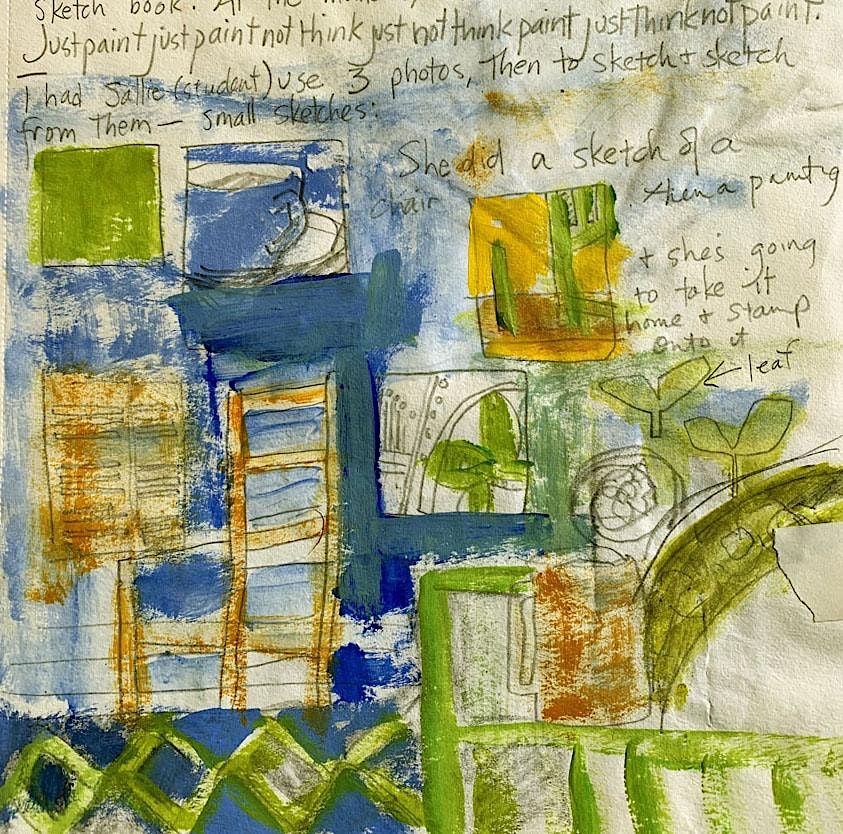 Sketch book. At the
Just paint just paint not think just not think paint just think not paint.
I had Sallie (student) use 3 photos, Then to sketch & sketch
from them — small sketches:
She did a sketch of a
chair
then a painting
& she's going
to take it
home & stamp
onto it
← leaf